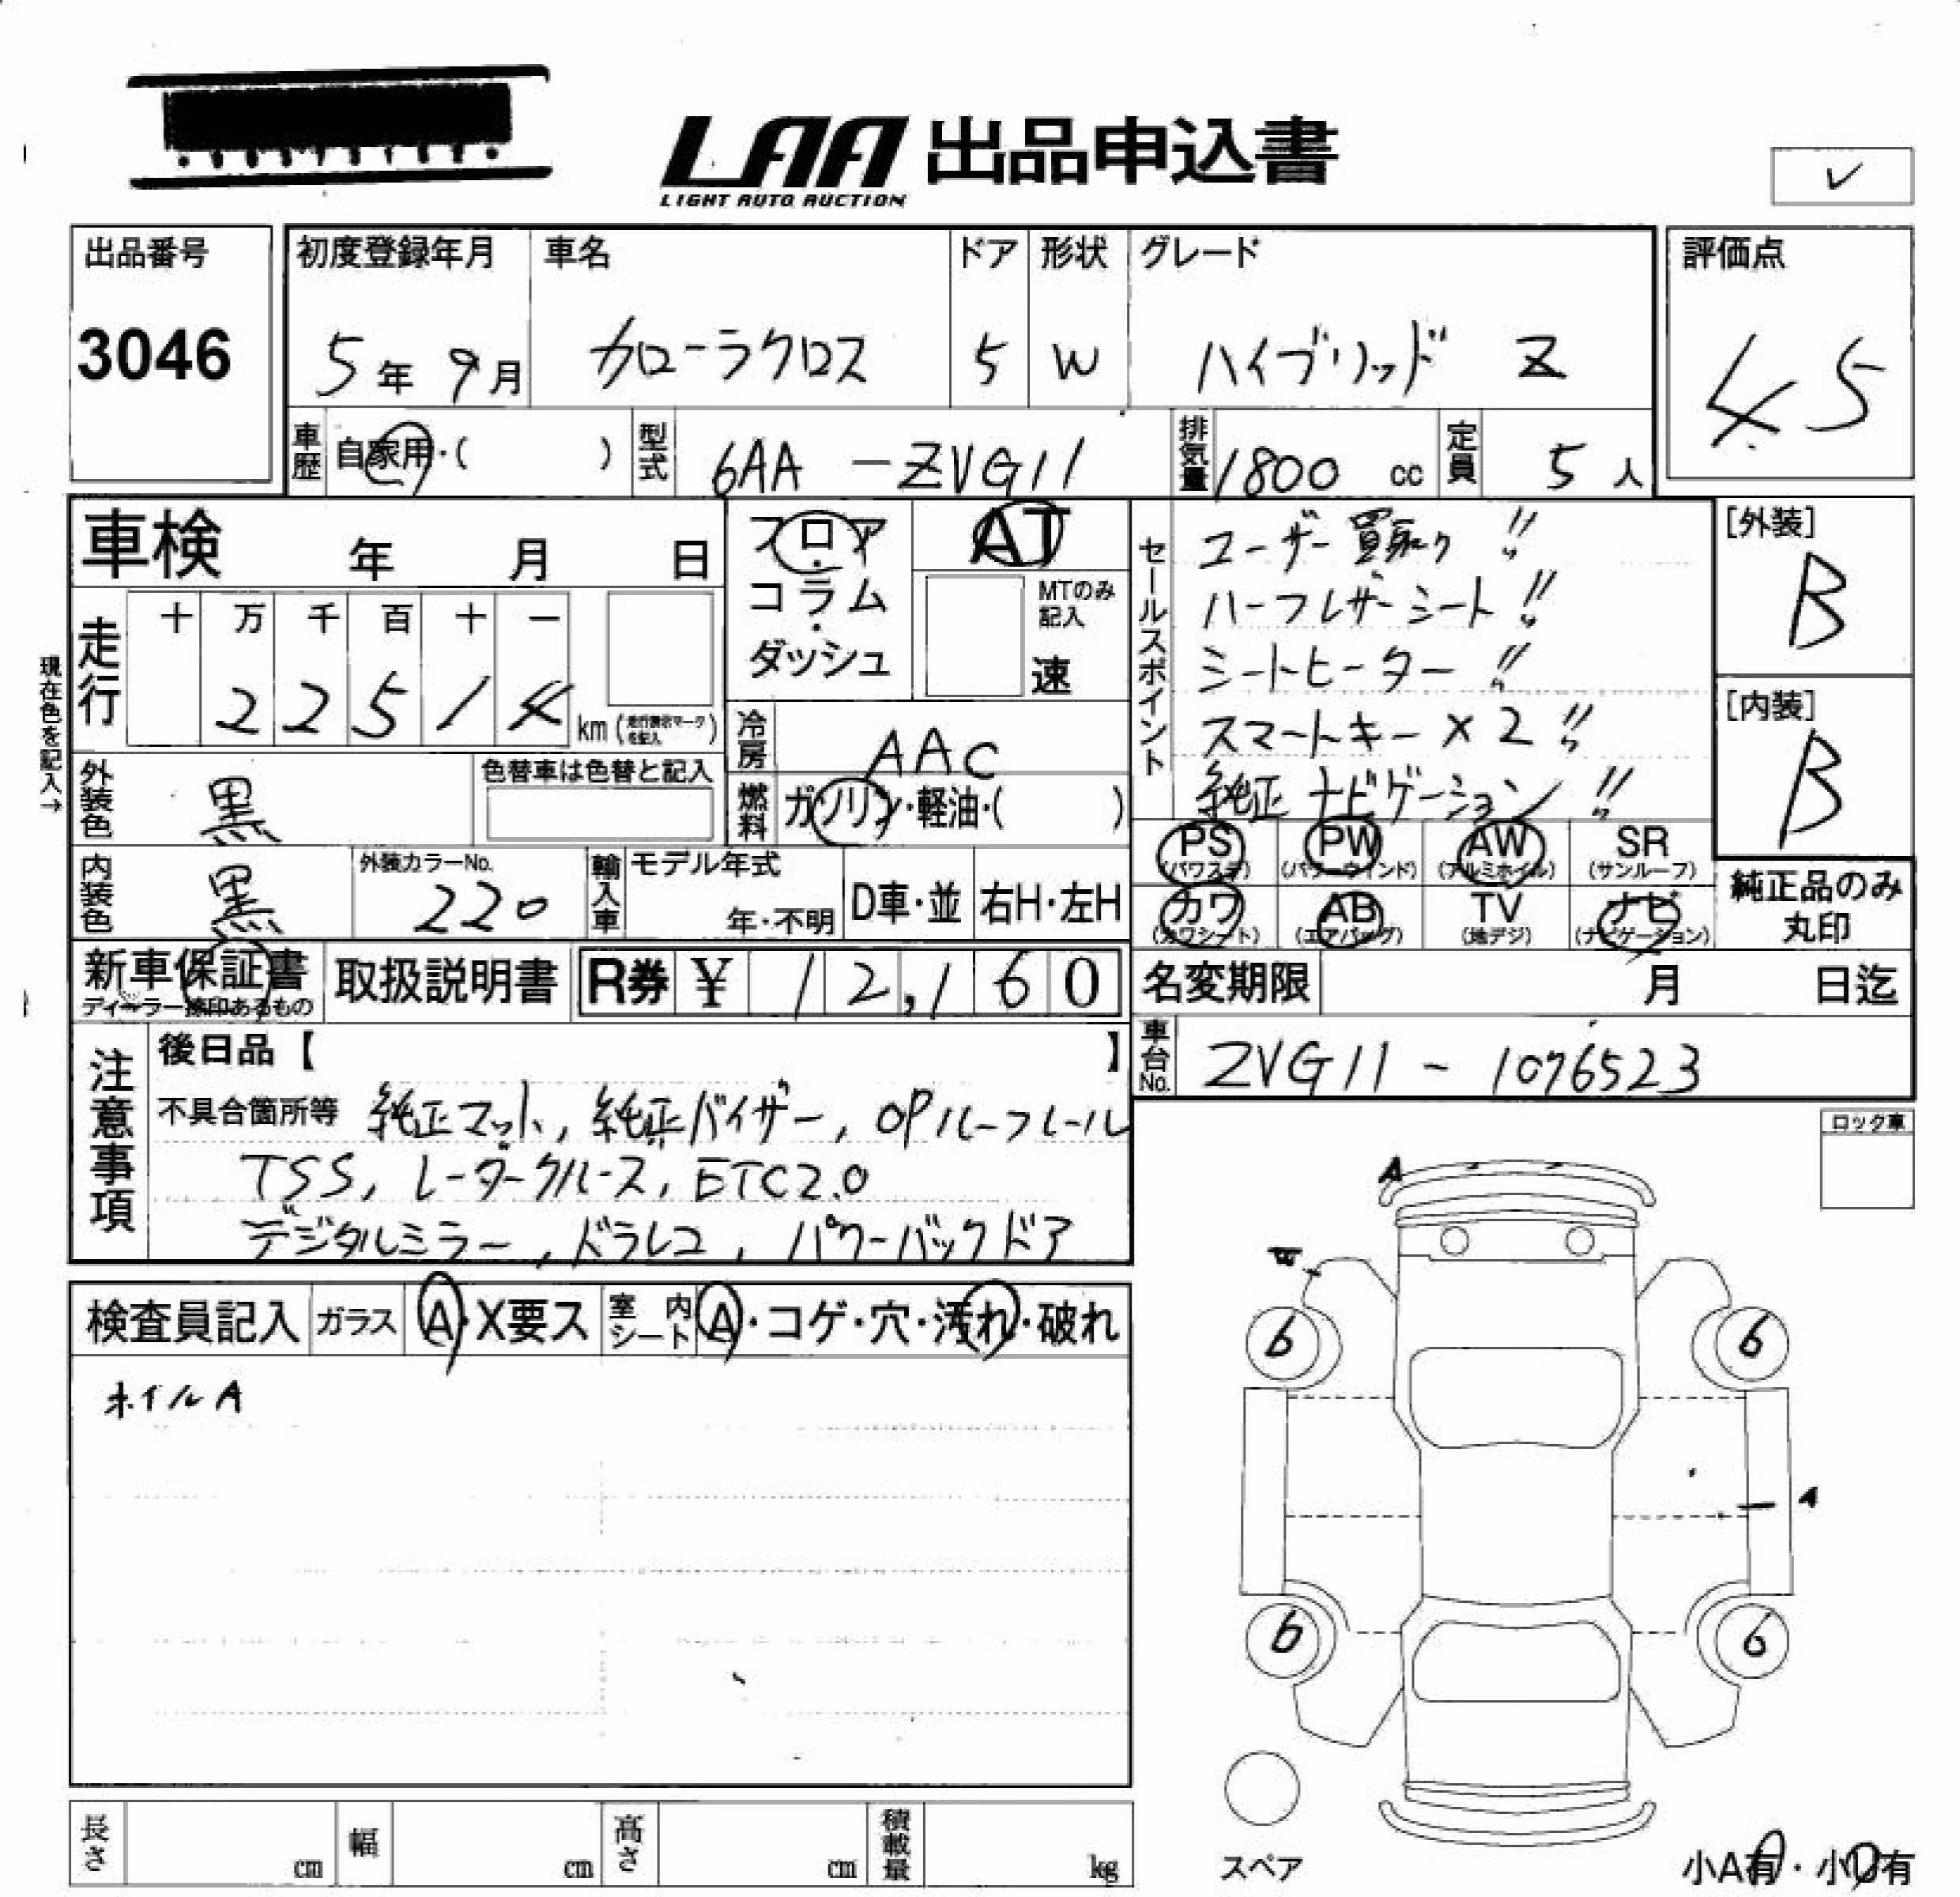 LAA 出品申込書
LIGHT AUTO AUCTION
✓
出品番号
3046
初度登録年月 車名 ドア 形状 グレード
5年 9月 カローラクロス 5 W ハイブリッド Z
評価点
4.5
車歴 自家用・( ) 型式 6AA -ZVG11 排気量 1800 cc 定員 5人
車検 年 月 日
フロア・コラム・ダッシュ
AT
MTのみ記入
速
走行 十 万 千 百 十 一
2 2 5 1 4 km (走行表示マークを記入)
現在色を記入→
冷房 AAC
燃料 ガソリン・軽油・( )
外装色 黒 色替車は色替と記入
内装色 黒 外装カラーNo. 220
輸入車 モデル年式 年・不明 D車・並 右H・左H
セールスポイント
ユーザー買取り!!
ハーフレザーシート!!
シートヒーター!!
スマートキー×2!!
純正ナビゲーション!!
[外装]
B
[内装]
B
PS (パワステ) PW (パワーウィンド) AW (アルミホイル) SR (サンルーフ)
カワ (カワシート) AB (エアバッグ) TV (地デジ) ナビ (ナビゲーション)
純正品のみ丸印
新車保証書 取扱説明書 R券 ¥ 12,160
ディーラー捺印あるもの
名変期限 月 日迄
車台No. ZVG11 - 1076523
注意事項
後日品【 】
不具合箇所等 純正マット, 純正バイザー, OPルーフレール
TSS, レーダークルーズ, ETC2.0
デジタルミラー, ドラレコ, パワーバックドア
検査員記入 ガラス A・X要ス 室内シート A・コゲ・穴・汚れ・破れ
ホイルA
ロック車
A
W
6 6
A
6 6
スペア
小A有・小U有
長さ cm 幅 cm 高さ cm 積載量 kg